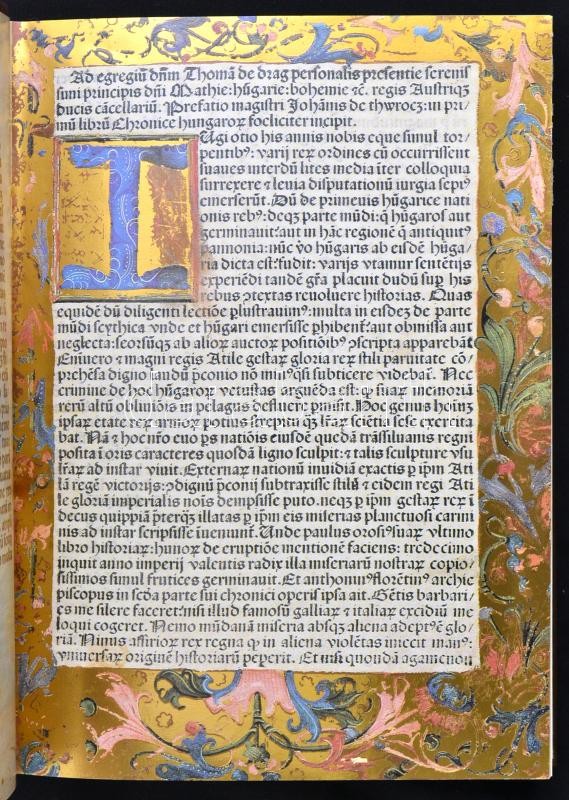 Ad egregiū dñm Thomā de drag personalis presentie sereniſ
simi principis dñi Mathie: hūgarie: bohemie ꝛc̄. regis Austriqꝫ
ducis cācellariū. Prefatio magistri Johānis de thwrocz: in pri
mū librū Chronice hungaroꝝ foeliciter incipit.
T Ugi otio his annis nobis eque simul tor⸗
pentibꝰ: varij reꝝ ordines cū occurrissent
suaues interdū lites media īter colloquia
surrexere ⁊ leuia disputationū iurgia sepiꝰ
emerserūt. Dū de primeuis hūgarice nati
onis rebꝰ: deqꝫ parte mūdi: q̄ hūgaros aut
germinauit: aut in hāc regionē q̄ antiquitꝰ
pannonia: nūc vo hūgaris ab eisdē hūga⸗
ria dicta est: fudit: varijs vtamur sentētijs
experiēdi tandē gr̄a placuit dudū suꝑ his
rebus ꝯtextas reuoluere historias. Quas
equidē dū diligenti lectiōe plustrauimꝰ: multa in eisdeꝫ de parte
mūdi scythica vnde et hūgari emersisse ꝓhibent̄: aut obmissa aut
neglecta: seorsūqꝫ ab alioꝝ auctoꝝ positiōibꝰ ꝯscripta apparebāt
Enīuero ⁊ magni regis Atile gestaꝝ gloria reꝝ stili paruitate cō⸗
prehēsa digno laudū p̄conio nō minꝰ qꝫ subticere videbat̄. Nec
crimine de hoc hūgaroꝝ vetustas arguēda est: qꝫ suaꝝ memoriā
rerū altū obliuiōis in pelagus defluere pmisit. Hoc genus hoīnꝫ
ipsaꝝ etate reꝝ armoꝝ potius strepitu qꝫ lr̄aꝝ sciētia sese exercita
bat. Nā ⁊ hoc nr̄o euo ꝑs natiōis eiusdē quedā trāssiluanis regni
posita ī oris caracteres quosdā ligno sculpit: ⁊ talis sculpture vsu
lr̄aꝝ ad instar viuit. Externaꝝ nationū inuidiā exactis ꝑ ipm̄ Ati
lā regē victorijs: ꝯdignū p̄conij subtraxisse stilū ⁊ eidem regi Ati
le gloriā imperialis nois dempsisse puto. neqꝫ ꝑ ipm̄ gestaꝝ reꝝ ī
decus quippiā p̄terqꝫ illatas ꝑ ipm̄ eis miserias planctuosi carmi
nis ad instar scripsisse īuenunt̄. Unde paulus orosiꝰ suaꝝ vltimo
libro historiaꝝ: hunoꝝ de eruptiōe mentionē faciens: tredecimo
inquit anno imperij valentis radix illa miseriarū nostraꝝ copio⸗
sissimos simul frutices germinauit. Et anthoniꝰ florētinꝰ archie
piscopus in scd̄a parte sui chronici operis ipsa ait. Gētis barbari
ei me silere faceret: nisi illud famosū galliaꝝ ⁊ italiaꝝ excidiū me
loqui cogeret. Nemo mūdanā miseria absqꝫ aliena adeptꝰ ē glo⸗
riā. Ninus assirioꝝ rex regna qꝫ in aliena violētas iniecit manꝰ:
vniuersaꝝ originē historiarū peperit. Et nisi quondā agamenon